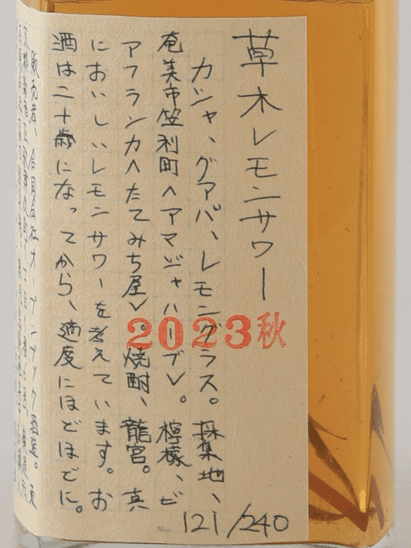 草木レモンサワー
カシャ、グアバ、レモングラス。採集地、
奄美市笠利町<アマジャハーブ>。檸檬、ビ
アフランカ<たてみち屋>。焼酎、龍宮。真
においしいレモンサワーを考えています。お
酒は二十歳になってから、適度にほどほどに。
販売者、合同会社
2023秋
No. 121/240